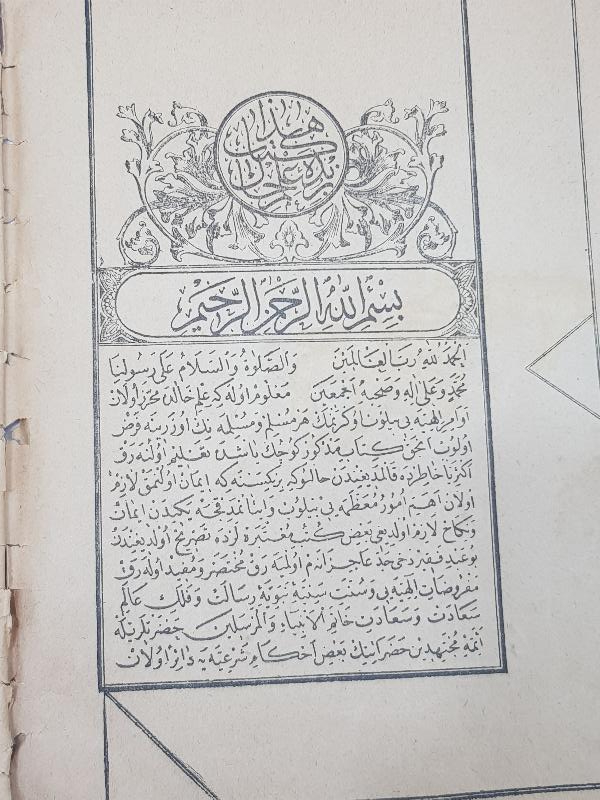 هذا
كتاب
زبدۀ علم
حال
بِسْمِ اللهِ الرَّحْمٰنِ الرَّحِيْمِ
اَلْحَمْدُ لِلّٰهِ رَبِّ الْعَالَمِيْنَ وَالصَّلٰوةُ وَالسَّلَامُ عَلٰى رَسُوْلِنَا
مُحَمَّدٍ وَعَلٰى اٰلِهِ وَصَحْبِهِ اَجْمَعِيْنَ معلوم اوله كه علم حالدن محرز اولان
اوامر الهيه يى بيلوب وكرنمك هر مسلم ومسلمه نك اوزرينه فرض
اولوب انجق كتاب مذكور كوچك ياشدن تعليم اولنه رق
اكثريا خاطرده قالمديغندن حالبوكه بر كسنه كه ايمان اولنمق لازم
اولان اهم امور معظمه يى بيلوب واينانمدقجه يكيدن ايمان
ونكاح لازم اولديغى بعض كتب معتبره لرده تصريح اولديغندن
بو عبد فقير دخى حد عاجزانه م اولميه رق مختصر ومفيد اوله رق
مفروضات الهيه يى وسنت سنيۀ نبويۀ رسالت وفلك عالم
سعادت وسعادت خاتم الانبياء والمرسلين حضرتلرينكه
ائمۀ مجتهدين حضراتينك بعض احكام شرعيه يه دائر اولان